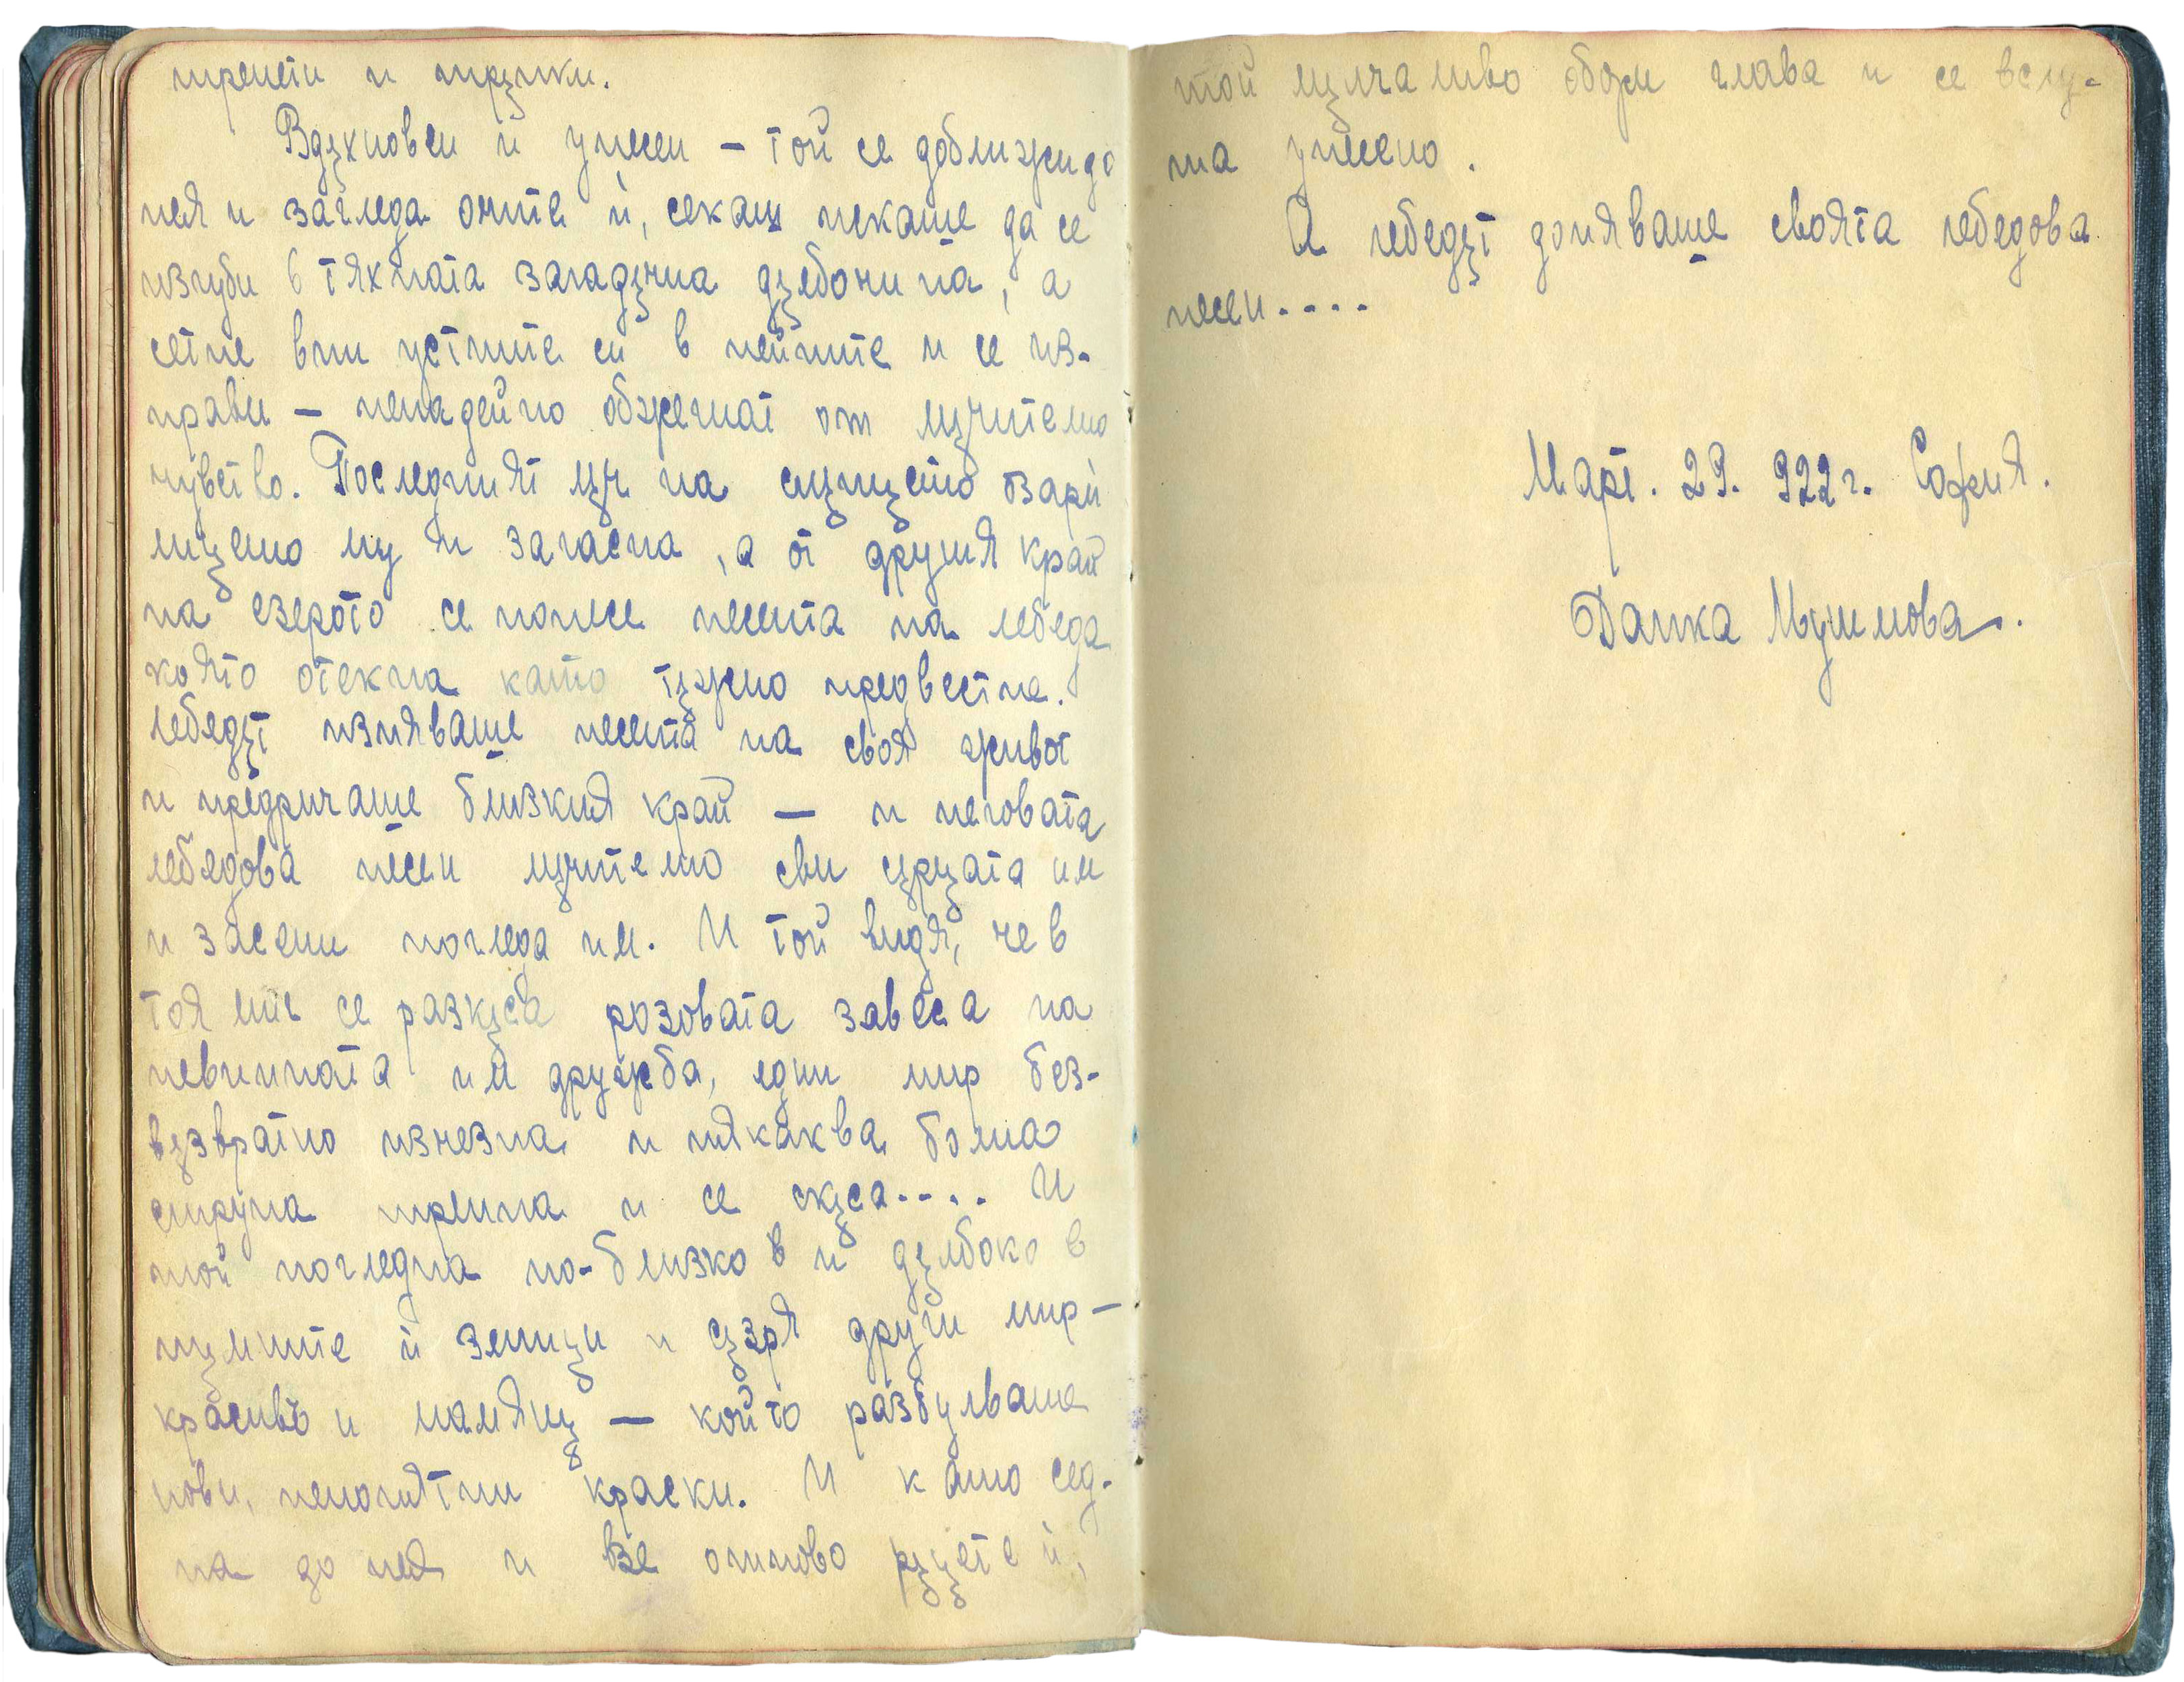 трепети и тръпки.
Вдъхновен и унесен – той се доближи до
нея и загледа очите ѝ, секаш искаше да се
изгуби в тяхната загадъчна дълбочина, а
сетне впи устните си в нейните и се из-
прави – ненадейно обхванат от мъчително
чувство. Последният лъч на слънцето озари
лицето му и загасна, а от другия край
на езерото се понесе песента на лебеда
която отекна като тъжно предвестие.
Лебедът изпяваше песента на своя живот
и предричаше близкия край – и неговата
лебедова песен мъчително сви сърцата им
и засени погледа им. И той видя, че в
тоя миг се разкъса розовата завеса на
невинната им дружба, един мир без-
възвратно изчезна и някаква болна
струна трепна и се скъса.... И
той погледна по-близко в и дълбоко в
тъмните ѝ зеници и съзря други мир –
красивъ и измамящ – който разбулваше
нови, непонятни краски. И като сед-
на до нея и взе отново ръцете ѝ,
той мълчаливо обори глава и се вслу-
ша унесено.
А лебедът допяваше своята лебедова
песен....
Март. 29. 922 г. София.
Данка Мушмова.